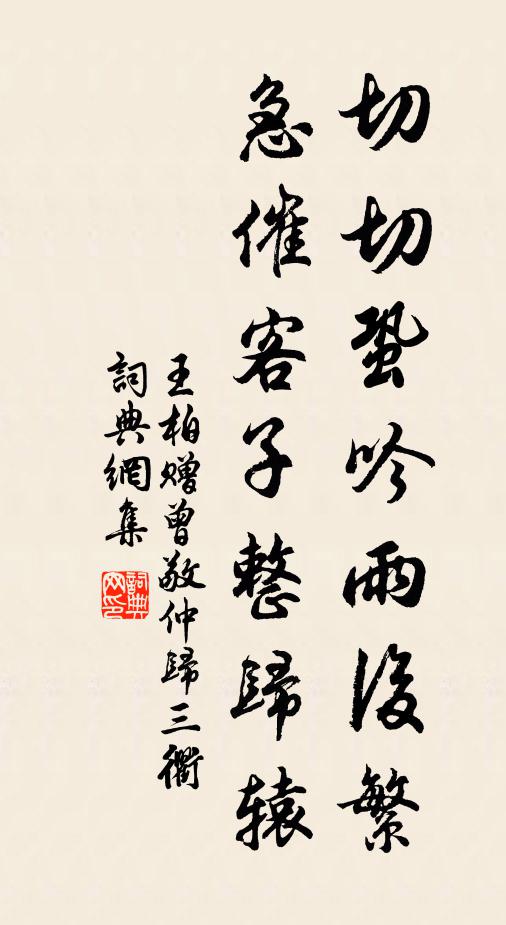 切切蛩吟雨後繁
急催客子整歸辕
王柏赠曾敬仲歸三衢
詞典網集
詞典网印